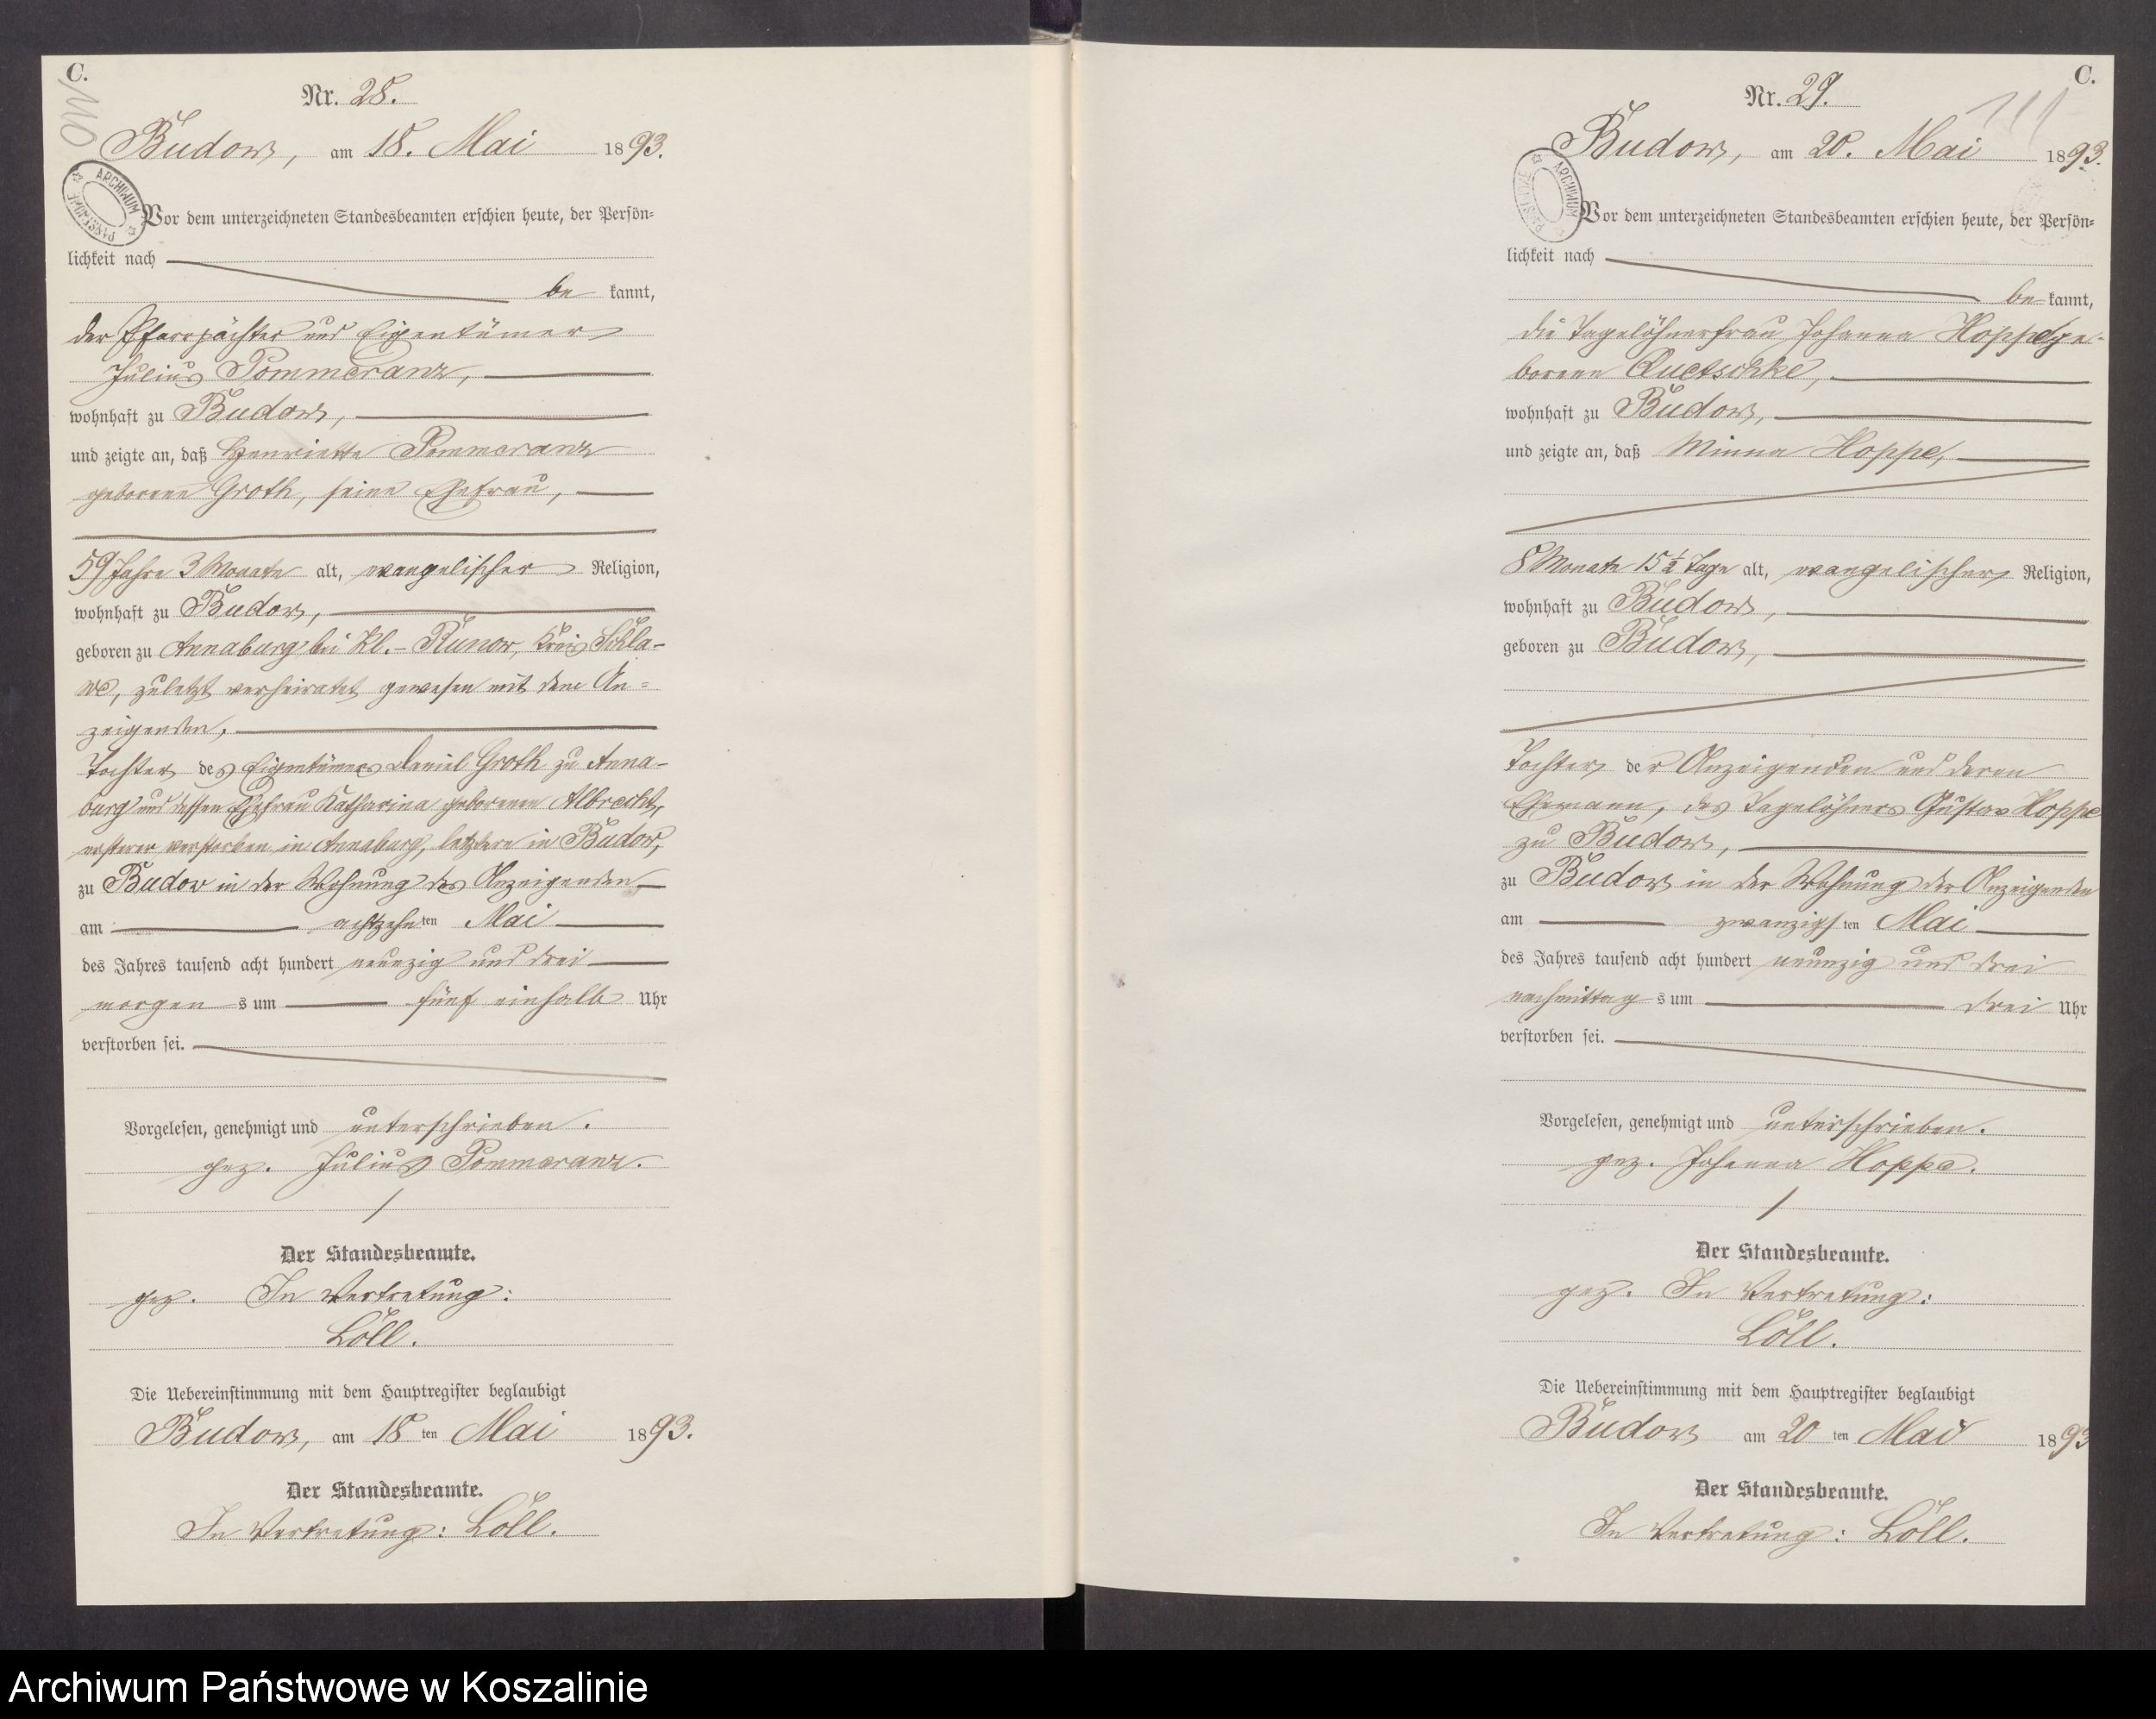 C.
110
Nr. 28.
Budow, am 18. Mai 1893.
ARCHIWUM PAŃSTWOWE
Vor dem unterzeichneten Standesbeamten erschien heute, der Persön=
lichkeit nach
be kannt,
der Pfarrpächter und Eigentümer
Julius Pommeranz,
wohnhaft zu Budow,
und zeigte an, daß Henriette Pommeranz
geborene Groth, seine Ehefrau,
59 Jahre 3 Monate alt, evangelischer Religion,
wohnhaft zu Budow,
geboren zu Annaburg bei Kl.- Runow, Kreis Schla-
we, zuletzt verheiratet gewesen mit dem An=
zeigenden,
Tochter des Eigentümers Daniel Groth zu Anna-
burg und dessen Ehefrau Katharina geborenen Albrecht,
ersterer verstorben in Annaburg, letztere in Budow,
zu Budow in der Wohnung des Anzeigenden
am achtzehn ten Mai
des Jahres tausend acht hundert neunzig und drei
morgen s um fünf einhalb Uhr
verstorben sei.
Vorgelesen, genehmigt und unterschrieben.
gez. Julius Pommeranz.
Der Standesbeamte.
gez. In Vertretung:
Löll.
Die Uebereinstimmung mit dem Hauptregister beglaubigt
Budow, am 18 ten Mai 1893.
Der Standesbeamte.
In Vertretung: Löll.
C.
111
Nr. 29.
Budow, am 20. Mai 1893.
ARCHIWUM PAŃSTWOWE
Vor dem unterzeichneten Standesbeamten erschien heute, der Persön=
lichkeit nach
be kannt,
die Tagelöhnerfrau Johanna Hoppe ge-
borene Quetschke,
wohnhaft zu Budow,
und zeigte an, daß Minna Hoppe,
8 Monate 15 ½ Tage alt, evangelischer Religion,
wohnhaft zu Budow,
geboren zu Budow,
Tochter der Anzeigenden und deren
Ehemann, des Tagelöhners Gustav Hoppe
zu Budow,
zu Budow in der Wohnung der Anzeigenden
am zwanzigs ten Mai
des Jahres tausend acht hundert neunzig und drei
nachmittag s um drei Uhr
verstorben sei.
Vorgelesen, genehmigt und unterschrieben.
gez. Johanna Hoppe.
Der Standesbeamte.
gez. In Vertretung:
Löll.
Die Uebereinstimmung mit dem Hauptregister beglaubigt
Budow am 20 ten Mai 1893
Der Standesbeamte.
In Vertretung: Löll.
Archiwum Państwowe w Koszalinie